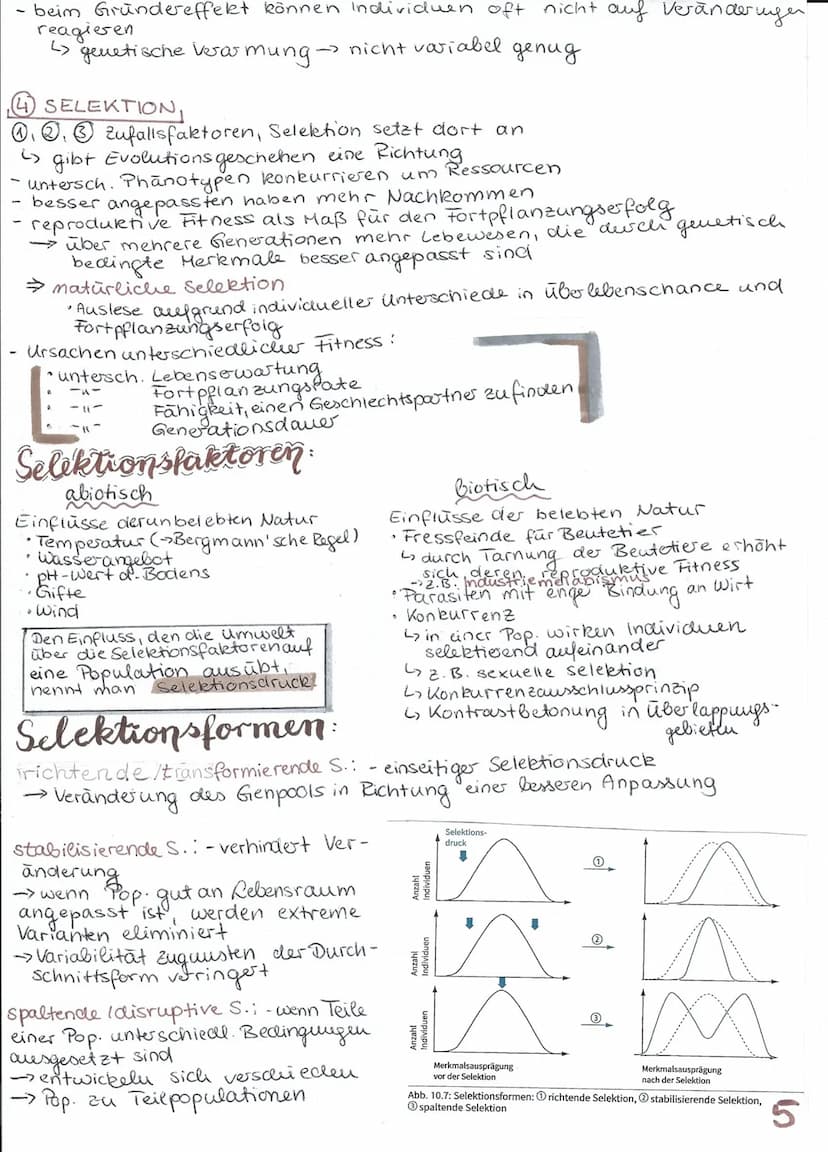 - beim Gründereffekt können Individuen oft nicht auf Veränderungen
reagieren
↳ genetische Verarmung → nicht variabel genug
④ SELEKTION
①, ②, ③ Zufallsfaktoren, Selektion setzt dort an
↳ gibt Evolutionsgeschehen eine Richtung
- untersch. Phänotypen konkurrieren um Ressourcen
- besser angepassten haben mehr Nachkommen
- reproduktive Fitness als Maß für den Fortpflanzungserfolg
→ über mehrere Generationen mehr Lebewesen, die durch genetisch
bedingte Merkmale besser angepasst sind
⇒ natürliche Selektion
· Auslese aufgrund individueller Unterschiede in Überlebenschance und
Fortpflanzungserfolg
- Ursachen unterschiedlicher Fitness:
· untersch. Lebenserwartung
· -"- Fortpflanzungsrate
· -"- Fähigkeit, einen Geschlechtspartner zu finden
· -"- Generationsdauer
Selektionsfaktoren:
abiotisch
Einflüsse der unbelebten Natur
· Temperatur (→Bergmann'sche Regel)
· Wasserangebot
· pH-Wert d. Bodens
· Gifte
· Wind
Den Einfluss, den die Umwelt
über die Selektionsfaktoren auf
eine Population ausübt,
nennt man Selektionsdruck
biotisch
Einflüsse der belebten Natur
· Fressfeinde für Beutetier
↳ durch Tarnung der Beutetiere erhöht
sich deren reproduktive Fitness
→ z.B. Industriemelanismus
· Parasiten mit enge Bindung an Wirt
· Konkurrenz
↳ in einer Pop. wirken Individuen
selektierend aufeinander
↳ z.B. sexuelle Selektion
↳ Konkurrenzausschlussprinzip
↳ Kontrastbetonung in Überlappungs-
gebieten
Selektionsformen:
richtende/transformierende S.: - einseitiger Selektionsdruck
→ Veränderung des Genpools in Richtung einer besseren Anpassung
stabilisierende S.: - verhindert Ver-
änderung
→ wenn Pop. gut an Lebensraum
angepasst ist, werden extreme
Varianten eliminiert
→ Variabilität zugunsten der Durch-
schnittsform verringert
spaltende/disruptive S.: - wenn Teile
einer Pop. unterschiedl. Bedingungen
ausgesetzt sind
→ entwickeln sich verschieden
→ Pop. zu Teilpopulationen
Selektions-
druck
Anzahl
Individuen
①
Anzahl
Individuen
②
Anzahl
Individuen
③
Merkmalsausprägung
vor der Selektion
Merkmalsausprägung
nach der Selektion
Abb. 10.7: Selektionsformen: ① richtende Selektion, ② stabilisierende Selektion,
③ spaltende Selektion
5